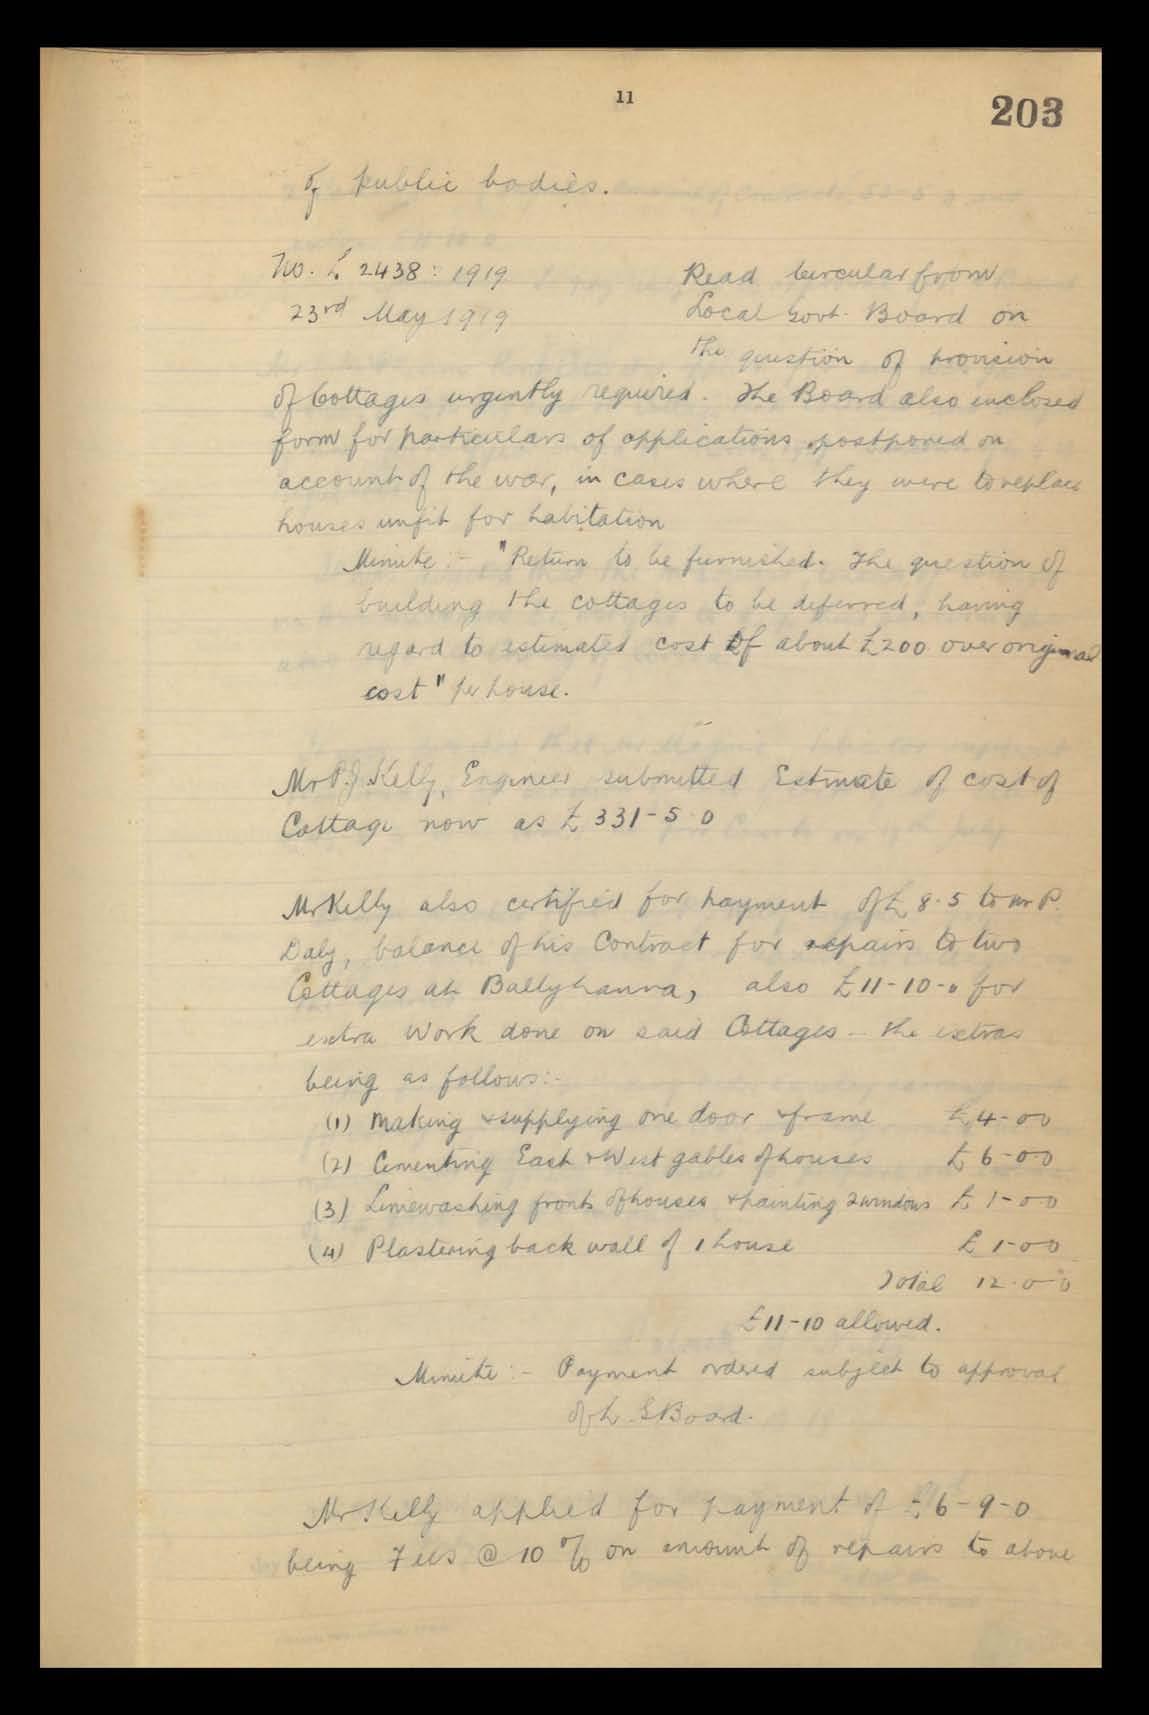 11
203
of public bodies.
No. L. 2438: 1919 Read Circular from
23rd May 1919 Local Govt. Board on
the question of provision
of Cottages urgently required. The Board also enclosed
form for particulars of applications postponed on
account of the war, in cases where they were to replace
houses unfit for habitation
Minute :- "Return to be furnished. The question of
building the cottages to be deferred, having
regard to estimated cost of about £200 over original
cost" per house.
Mr P.J. Kelly, Engineer submitted Estimate of cost of
Cottage now as £331-5-0
Mr Kelly also certified for payment of £8.5 to Mr P.
Daly, balance of his Contract for repairs to two
Cottages at Ballyhanna, also £11-10-0 for
extra work done on said Cottages - the extras
being as follows:-
(1) Making & supplying one door & frame £4-0-0
(2) Cementing East & West gables of houses £6-0-0
(3) Limewashing fronts of houses & painting 2 windows £1-0-0
(4) Plastering back wall of 1 house £1-0-0
Total 12-0-0
£11-10 allowed.
Minute :- Payment ordered subject to approval
of L.G Board.
Mr Kelly applied for payment of £6-9-0
being Fees @ 10% on amount of repairs to above